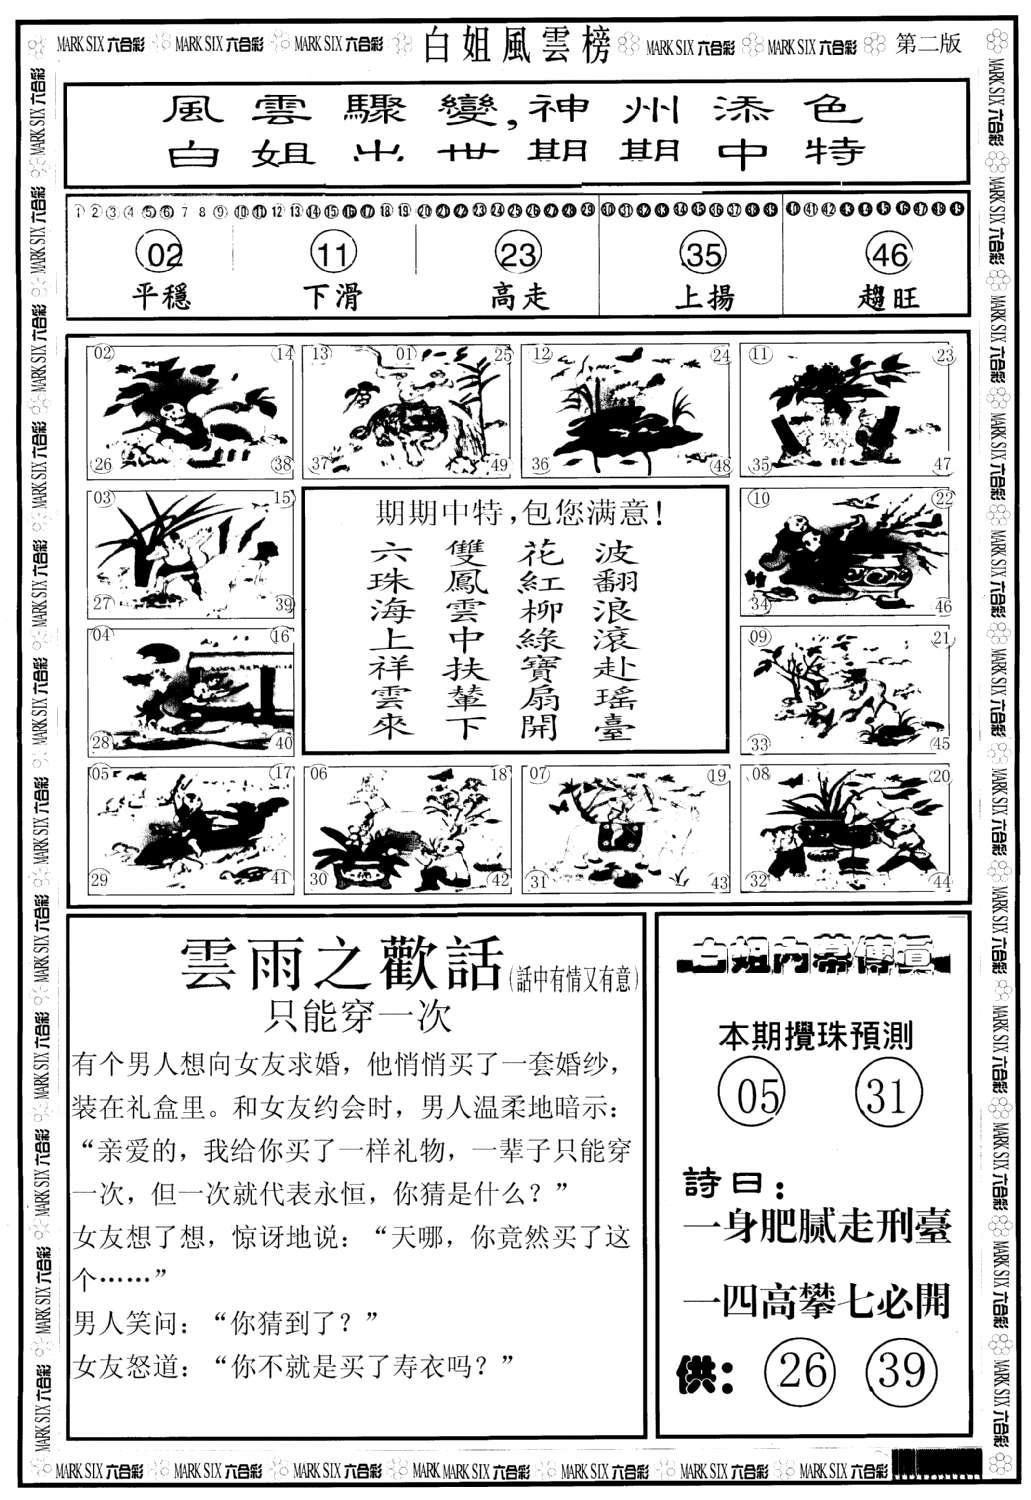 MARK SIX 六合彩 MARK SIX 六合彩 MARK SIX 六合彩 白姐風雲榜 MARK SIX 六合彩 MARK SIX 六合彩 第二版
風雲驟變,神州添色
白姐出世期期中特
1 2 3 4 5 6 7 8 9 10 11 12 13 14 15 16 17 18 19 20 21 22 23 24 25 26 27 28 29 30 31 32 33 34 35 36 37 38 39 40 41 42 43 44 45 46 47 48 49
02 11 23 35 46
平穩 下滑 高走 上揚 趨旺
02 14 13 01 25 12 24 11 23
26 38 37 49 36 48 35 47
03 15
27 39
04 16
28 40
期期中特,包您满意!
六珠海上祥雲來
雙鳳雲中扶輦下
花紅柳綠寶扇開
波翻浪滾赴瑤臺
10 22
34 46
09 21
33 45
05 17 06 18 07 19 08 20
29 41 30 42 31 43 32 44
雲雨之歡話(話中有情又有意)
只能穿一次
有个男人想向女友求婚，他悄悄买了一套婚纱，
装在礼盒里。和女友约会时，男人温柔地暗示：
“亲爱的，我给你买了一样礼物，一辈子只能穿
一次，但一次就代表永恒，你猜是什么？”
女友想了想，惊讶地说：“天哪，你竟然买了这
个……”
男人笑问：“你猜到了？”
女友怒道：“你不就是买了寿衣吗？”
白姐內幕傳真
本期攪珠預測
05 31
詩曰：
一身肥腻走刑臺
一四高攀七必開
供： 26 39
MARK SIX 六合彩 MARK SIX 六合彩 MARK SIX 六合彩 MARK MARK SIX 六合彩 MARK SIX 六合彩 MARK SIX 六合彩 MARK SIX 六合彩